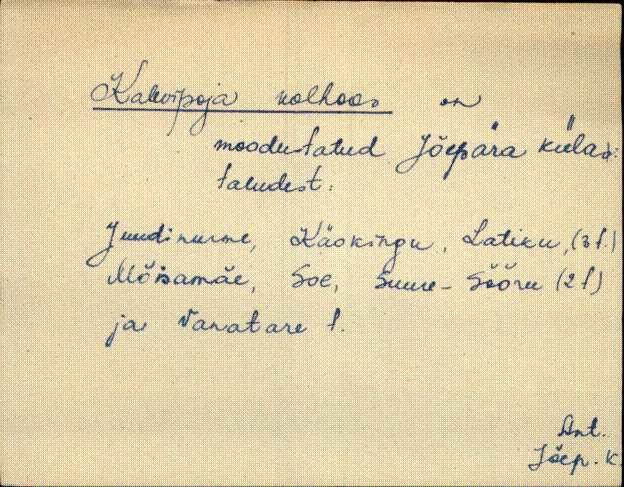 Kalevipoja kolhoos on
moodustatud Jõepära külas:
taludest:
Juudinurme, Käokingu, Latiku, (3 t.)
Mõisamäe, Soe, Suure-Sööru (2 t)
ja Vanatare t.
Ant.
Jõep. k.